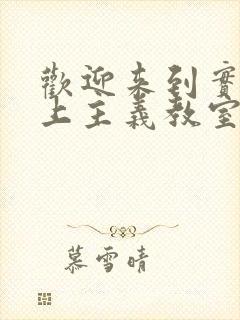 歡迎來到實
上主義教室
慕雪晴